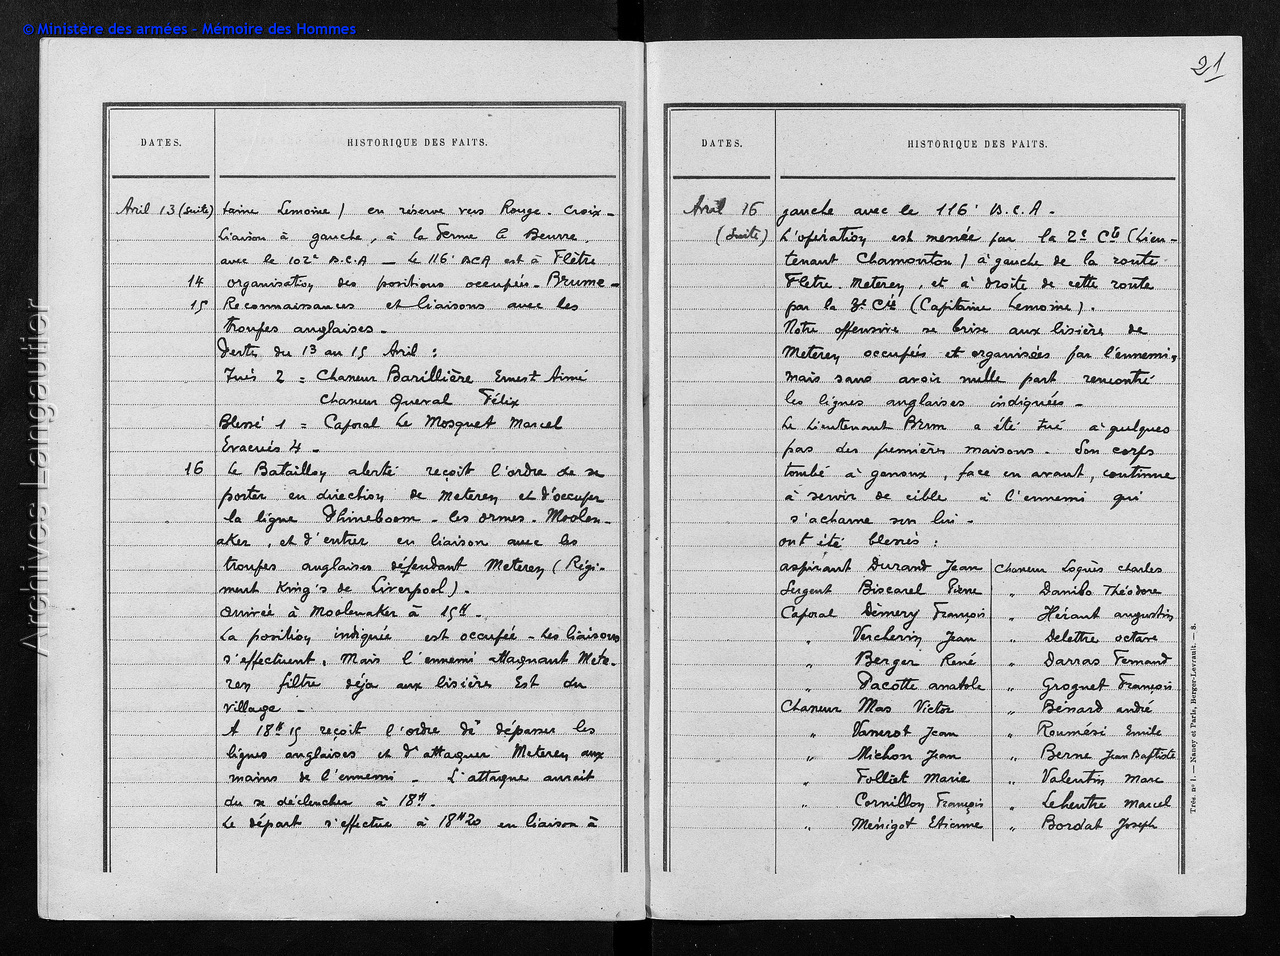 © Ministère des armées - Mémoire des Hommes
Archives Langautier
21
DATES. HISTORIQUE DES FAITS.
Avril 13 (suite) taine Lemoine) en réserve vers Rouge-Croix-
Liaison à gauche, à la ferme le Beurre,
avec le 102e B.C.A — Le 116e BCA est à Flêtre
14 organisation des positions occupées - Brume -
15 Reconnaissances et liaisons avec les
troupes anglaises -
Perte du 13 au 15 Avril :
Tués 2 = Chasseur Barillière Ernest Aimé
Chasseur Queval Félix
Blessé 1 = Caporal Le Mosquet Marcel
Evacués 4 -
16 Le Bataillon alerté reçoit l'ordre de se
porter en direction de Meteren et d'occuper
la ligne Phineboom - les ormes - Moolen-
aker, et d'entrer en liaison avec les
troupes anglaises défendant Meteren (Régi-
ment King's de Liverpool).
Arrivée à Moolenaker à 15H -
La position indiquée est occupée - Les liaisons
s'effectuent, Mais l'ennemi attaquant Mete-
ren filtre déja aux lisière Est du
village -
A 18H15 reçoit l'ordre de dépasser les
lignes anglaises et d'attaquer Meteren aux
mains de l'ennemi - L'attaque aurait
du se déclencher à 18H.
Le départ s'effectue à 18H20 en liaison à
DATES. HISTORIQUE DES FAITS.
Avril 16 gauche avec le 116e B.C.A -
(suite) L'opération est menée par la 2e Cie (Lieu-
tenant Chamonton) à gauche de la route
Flêtre - Meteren, et à droite de cette route
par la 3e Cie (Capitaine Lemoine).
Notre offensive se brise aux lisière de
Meteren occupées et organisées par l'ennemi,
mais sans avoir nulle part rencontré
les lignes anglaises indiquées -
Le Lieutenant Brun a été tué à quelques
pas des premières maisons - Son corps
tombé à genoux, face en avant, continue
à servir de cible à l'ennemi qui
s'acharne sur lui -
ont été blessés :
aspirant Durand Jean Chasseur Loquès Charles
Sergent Biscarel Pierre " Danibo Théodore
Caporal Démery François " Hérant augustin
" Vercherin Jean " Delettre octave
" Berger René " Darras Fernand
" Pacotte anatole " Grognet François
Chasseur Mas Victor " Bénard andré
" Vanerot Jean " Roumési Emile
" Michon Jean " Berne Jean Baptiste
" Folliet Marie " Valentin Marc
" Cornillon François " Lehentre Marcel
" Ménigot Etienne " Bordat Joseph
Trés. nº 1. — Nancy et Paris, Berger-Levrault. — 8.